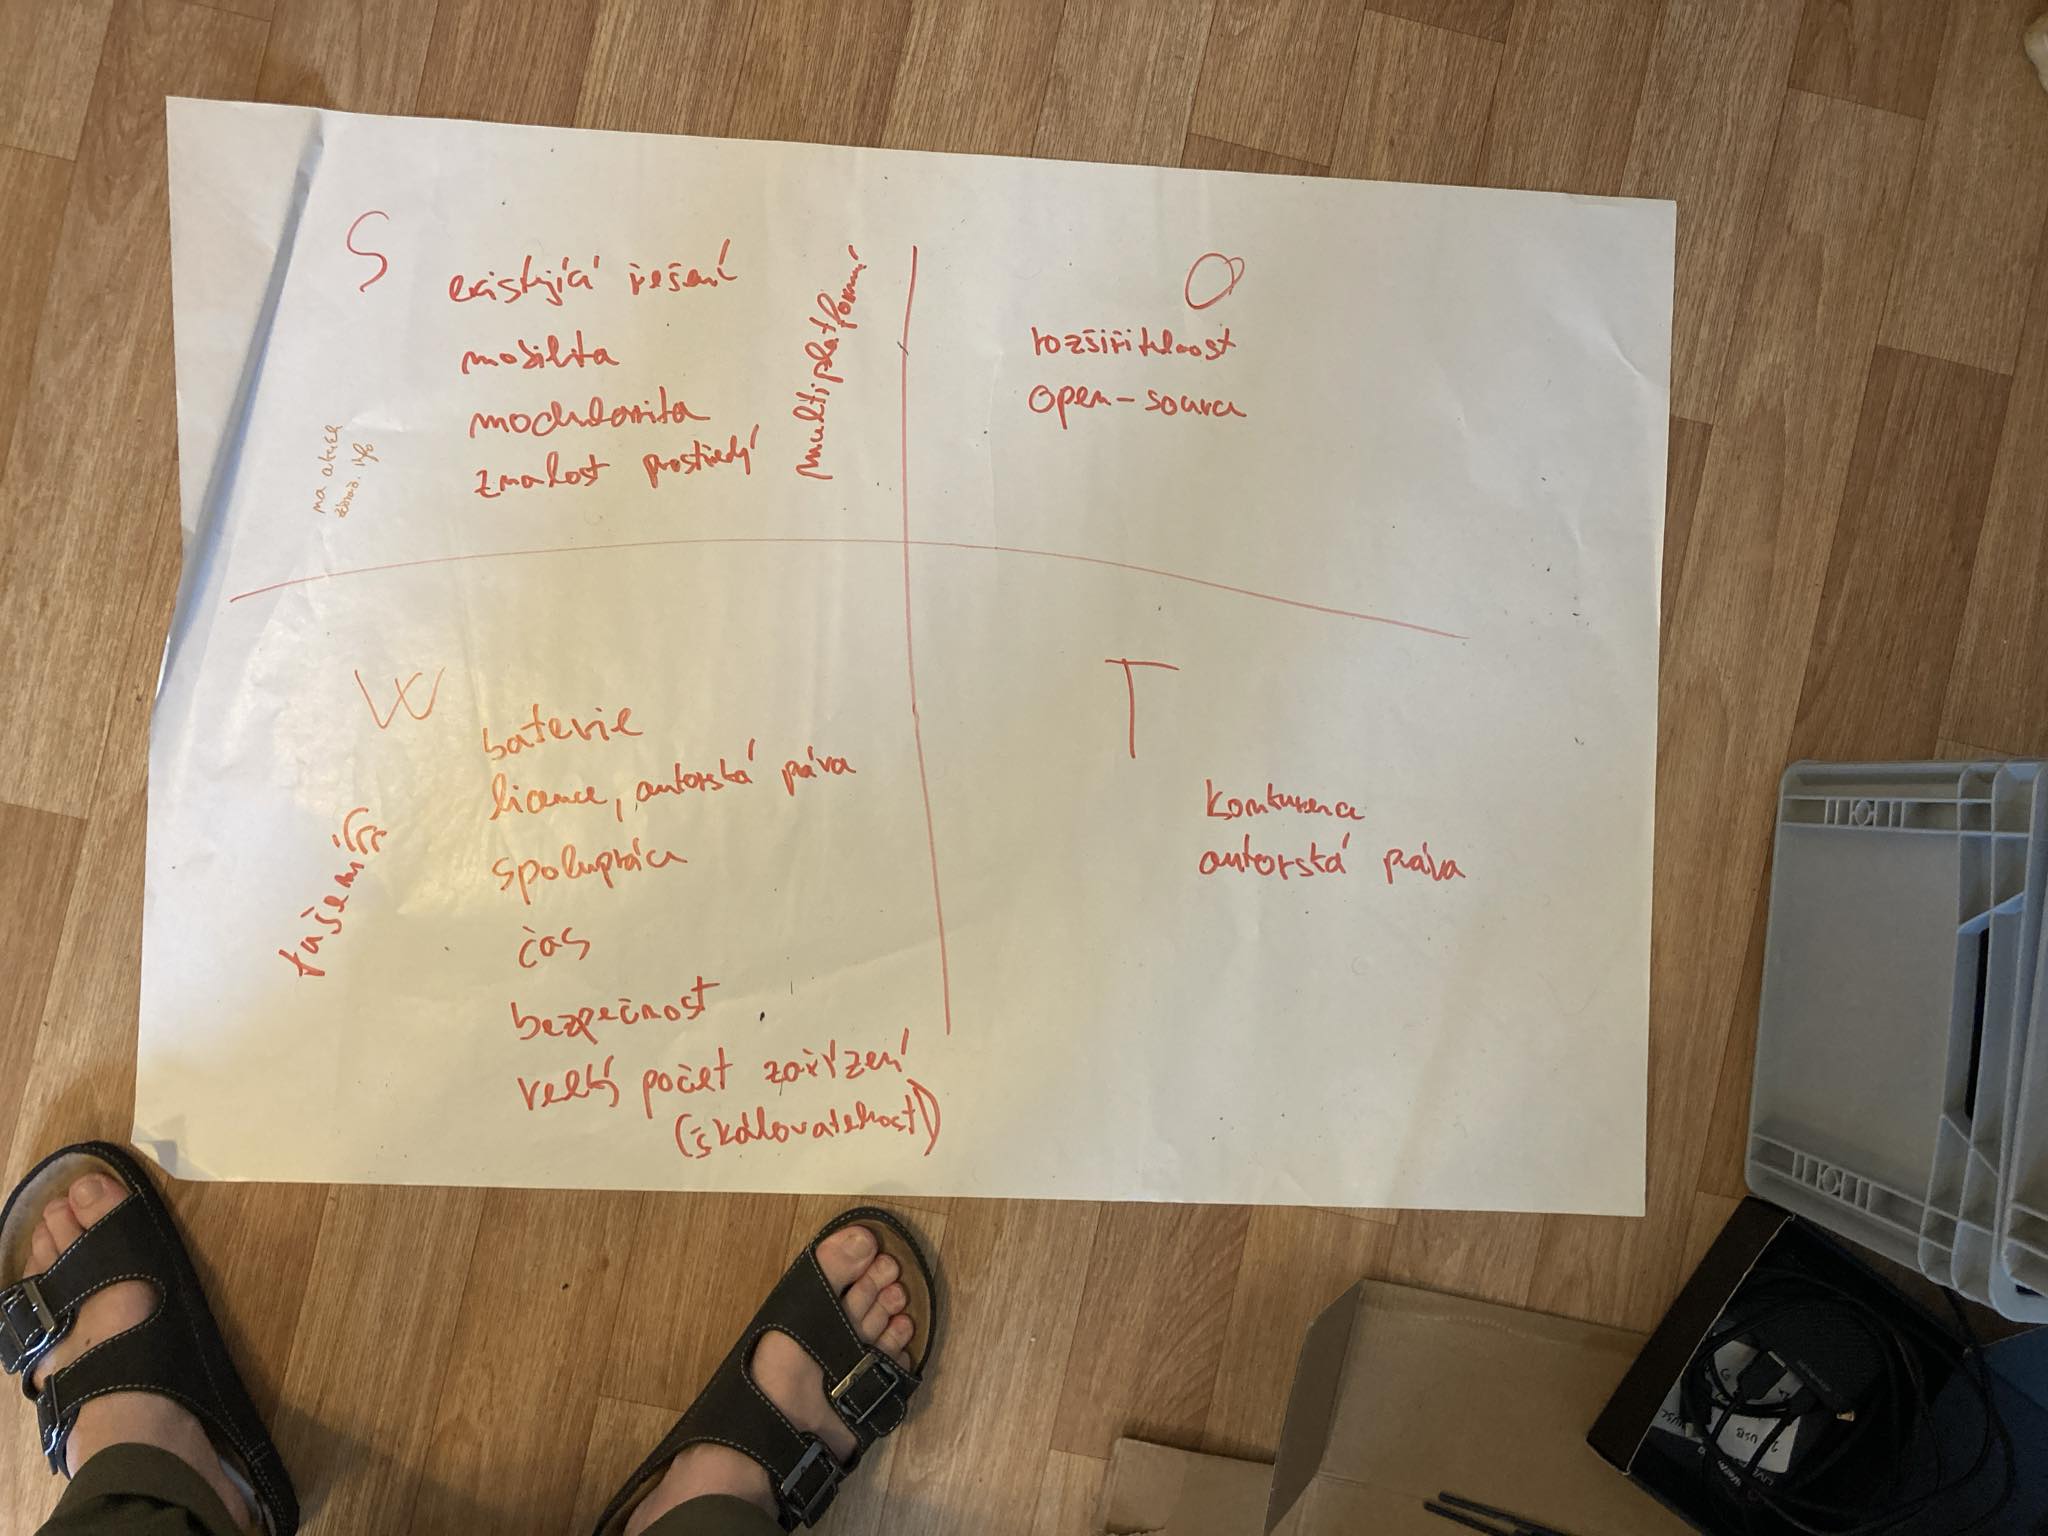 S
existující řešení
mobilita
modularita
znalost prostředí
multiplatformní
O
rozšiřitelnost
open-source
W
baterie
licence, autorská práva
spolupráce
čas
bezpečnost
velký počet zařízení
(škálovatelnost)
T
konkurence
autorská práva
USB